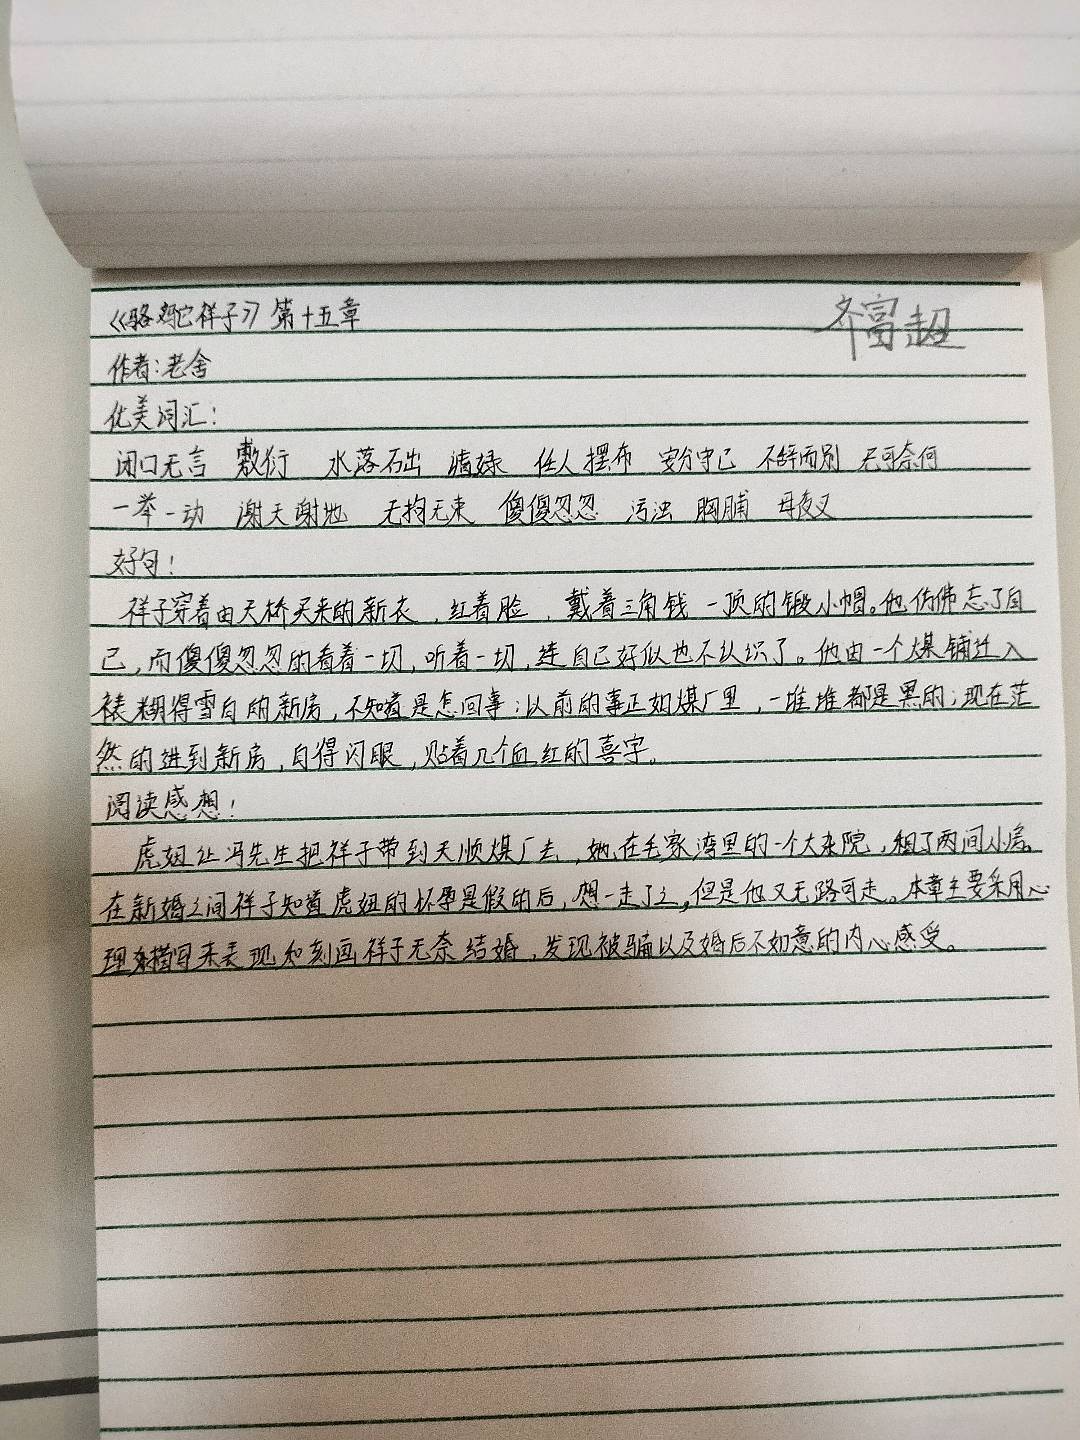 《骆驼祥子》第十五章
齐富超
作者:老舍
优美词汇:
闭口无言 敷衍 水落石出 任人摆布 安分守己 不辞而别 无可奈何
一举一动 谢天谢地 无拘无束 傻傻忽忽 污浊 胸脯 母夜叉
好句!
祥子穿着由天桥买来的新衣,红着脸,戴着三角钱一顶的缎小帽。他仿佛忘了自
己,而傻傻忽忽的看着一切,听着一切,连自己好似也不认识了。他由一个煤铺迁入
裱糊得雪白的新房,不知道是怎回事:以前的事正如煤厂里,一堆堆都是黑的;现在茫
然的进到新房,白得闪眼,贴着几个血红的喜字。
阅读感想!
虎妞让冯先生把祥子带到天顺煤厂去,她在毛家湾里的一个大杂院,租了两间小房。
在新婚之间祥子知道虎妞的怀孕是假的后,想一走了之,但是他又无路可走。本章主要采用心
理描写来表现和刻画祥子无奈结婚,发现被骗以及婚后不如意的内心感受。